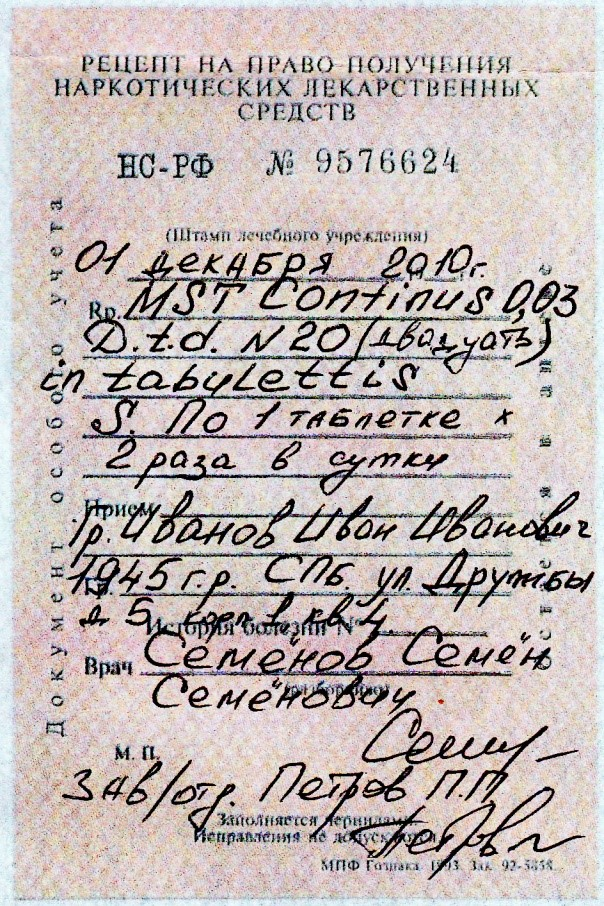 РЕЦЕПТ НА ПРАВО ПОЛУЧЕНИЯ
НАРКОТИЧЕСКИХ ЛЕКАРСТВЕННЫХ
СРЕДСТВ
НС-РФ № 9576624
(Штамп лечебного учреждения)
01 декабря 2010г.
Rp. MST Continus 0,03
D.t.d. N 20 (двадцать)
in tabylettis
S. По 1 таблетке х
2 раза в сутки
Прием
гр. Иванов Иван Иванович
1945 г.р. СПб. ул. Дружбы
д 5 корп 1 кв 4
История болезни №
Врач Семёнов Семён
Семёнович
(разборчиво)
М. П.
Зав/отд. Петров П.П
Заполняется чернилами.
Исправления не допускаются.
МПФ Гознака. 1993. Зак. 92-5858.
Документ особого учета